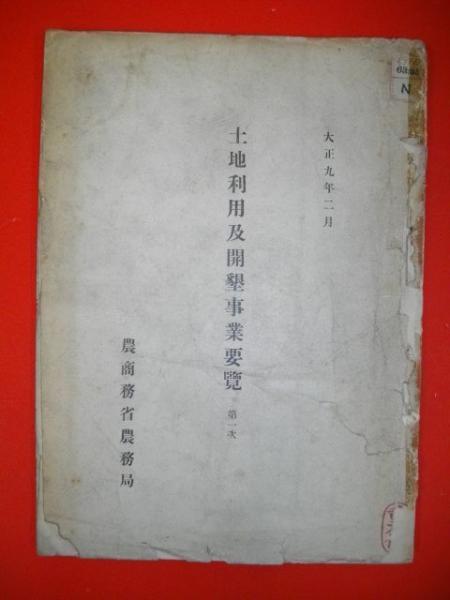 大正九年二月
土地利用及開墾事業要覽
第一次
農商務省農務局
N